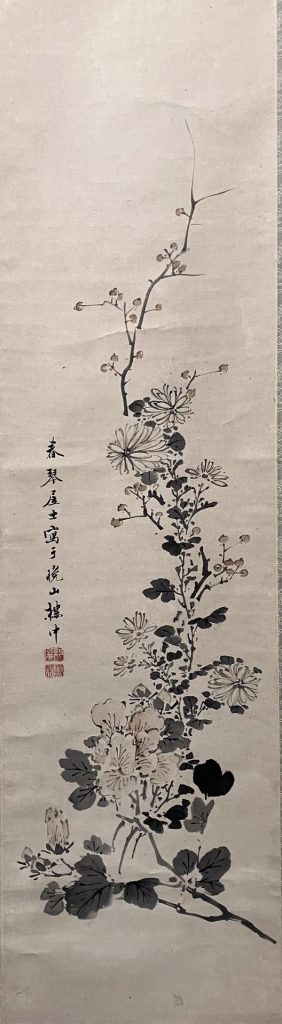 春琴居士寫于晩山樓中